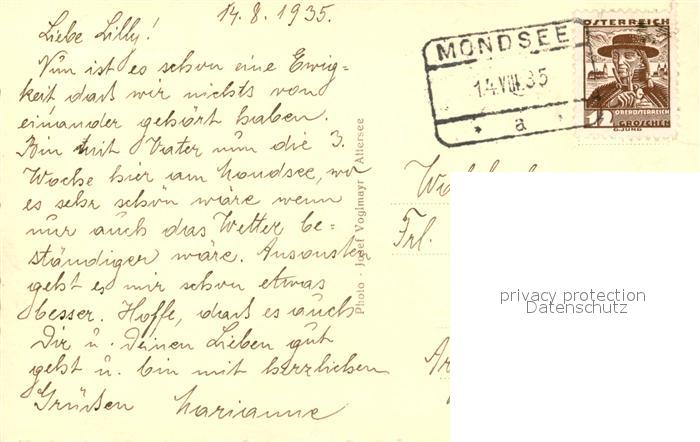 14.8.1935.
Liebe Lilly!
Nun ist es schon eine Ewig=
keit daß wir nichts von
einander gehört haben.
Bin mit Vater nun die 3.
Woche hier am Mondsee, wo
es sehr schön wäre wenn
nur auch das Wetter be=
ständiger wäre. Ansonsten
geht es mir schon etwas
besser. Hoffe, daß es auch
Dir u. Deinen Lieben gut
geht u. bin mit herzlichen
Grüßen Marianne
Photo - Josef Voglmayr Attersee
MONDSEE
14.VIII.35
* a *
ÖSTERREICH
OBERÖSTERREICH
12 GROSCHEN
G. JUNG
Frl.
privacy protection
Datenschutz